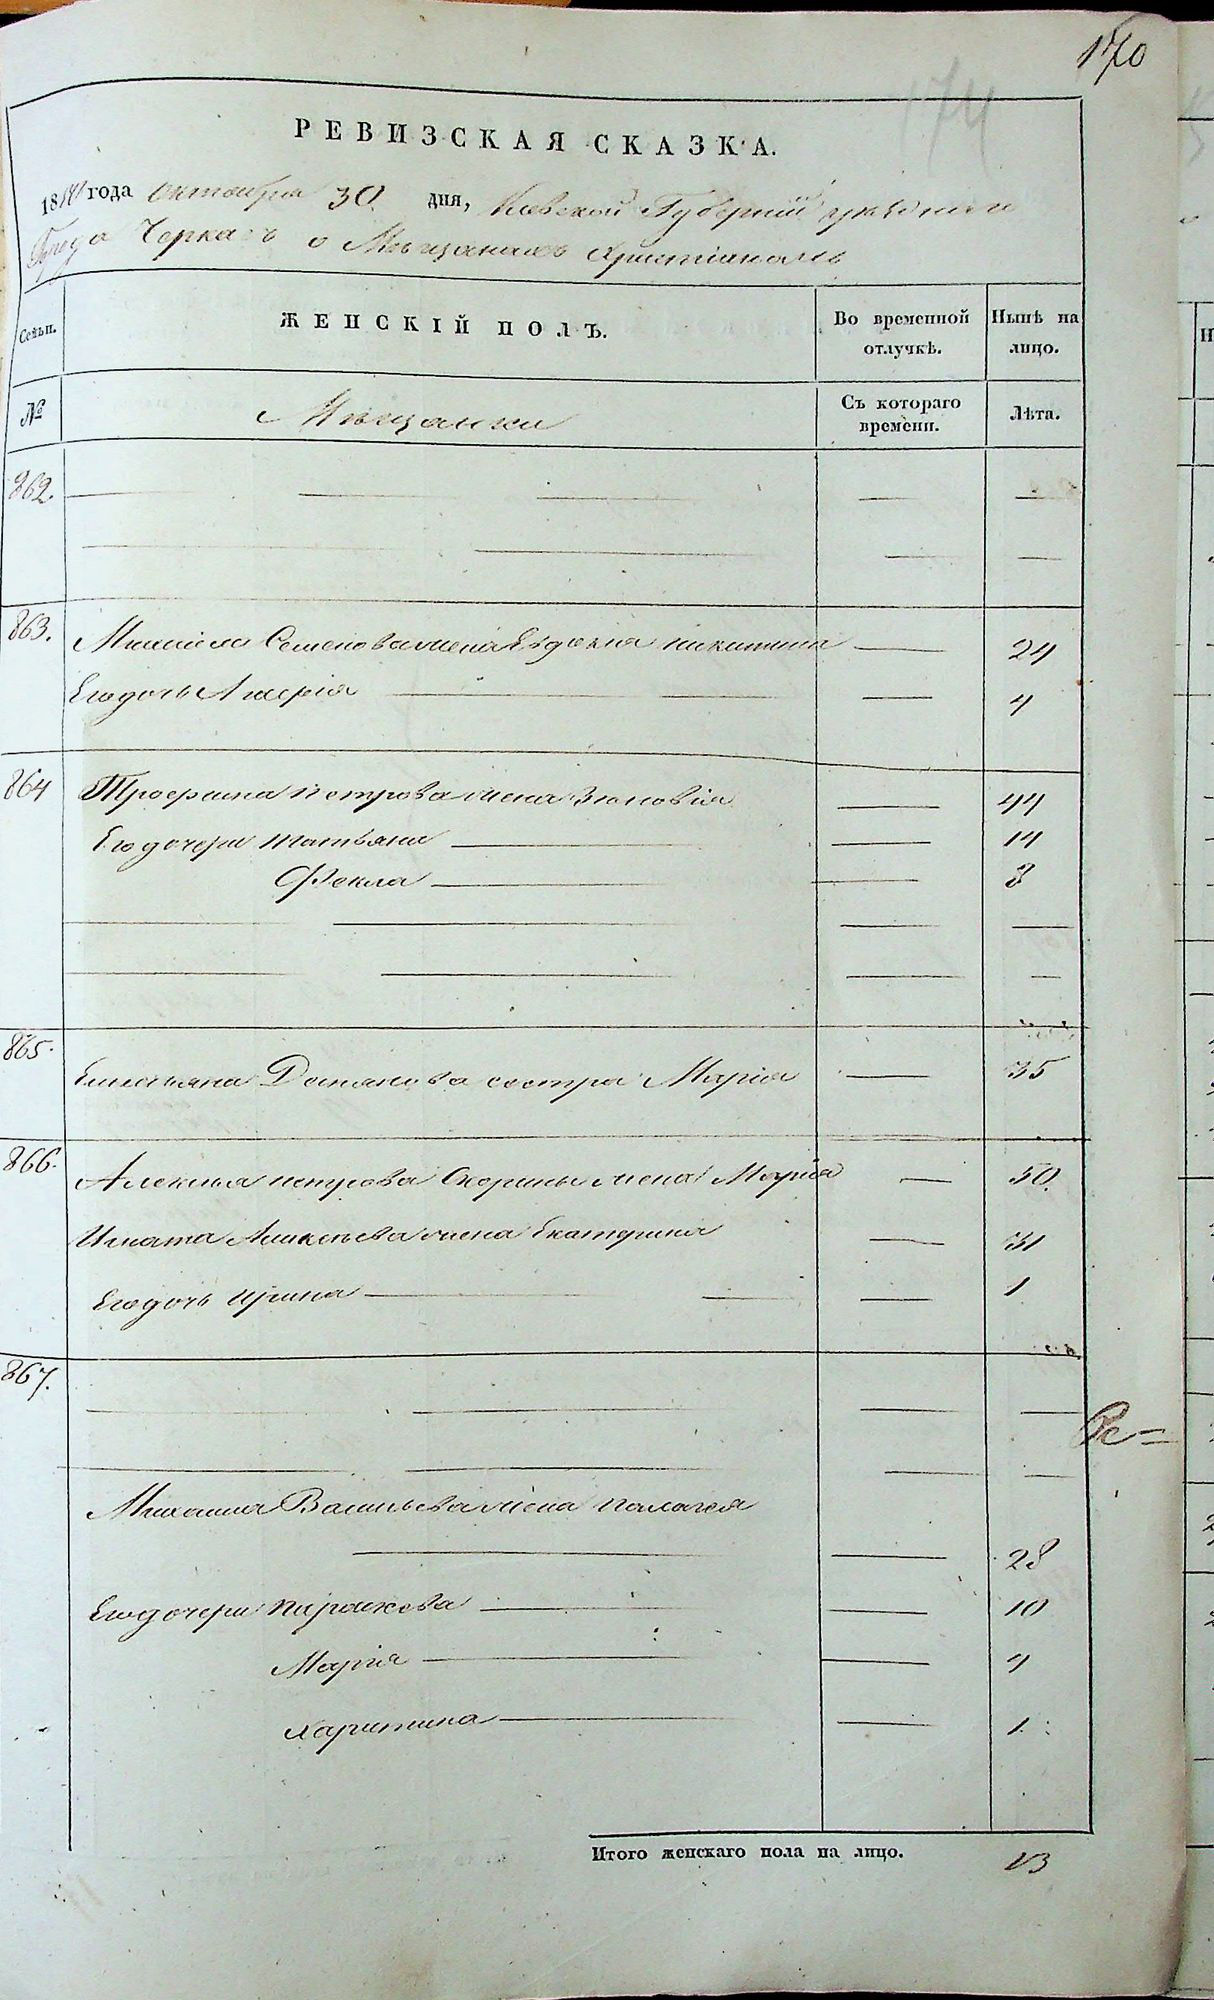 170
174
РЕВИЗСКАЯ СКАЗКА.
18 года Октября 30. дня, Кіевской Губерніи уѣзднаго
Города Черкасъ о Мѣщанахъ Христіанахъ
Семьи. ЖЕНСКІЙ ПОЛЪ. Во временной отлучкѣ. Нынѣ на лицо.
№ Мѣщанки Съ котораго времени. Лѣта.
862.
863. Семенова жена Евдокия Никитина 24
Его дочь 4
864 Трофима Петрова жена Зиновія 44
Его дочери Татьяна 14
Фекла 8
865. Емельяна Демянова сестра Марія 35
866. Алексея Петрова жена Марія 50.
Игната Алексѣева жена Екатерина 31
Его дочь Ирина 1
867.
Михаила Васильева жена Палагея
28
Его дочери Парасковa 10
Марія 4
Харитина 1
Итого женскаго пола на лицо. 13